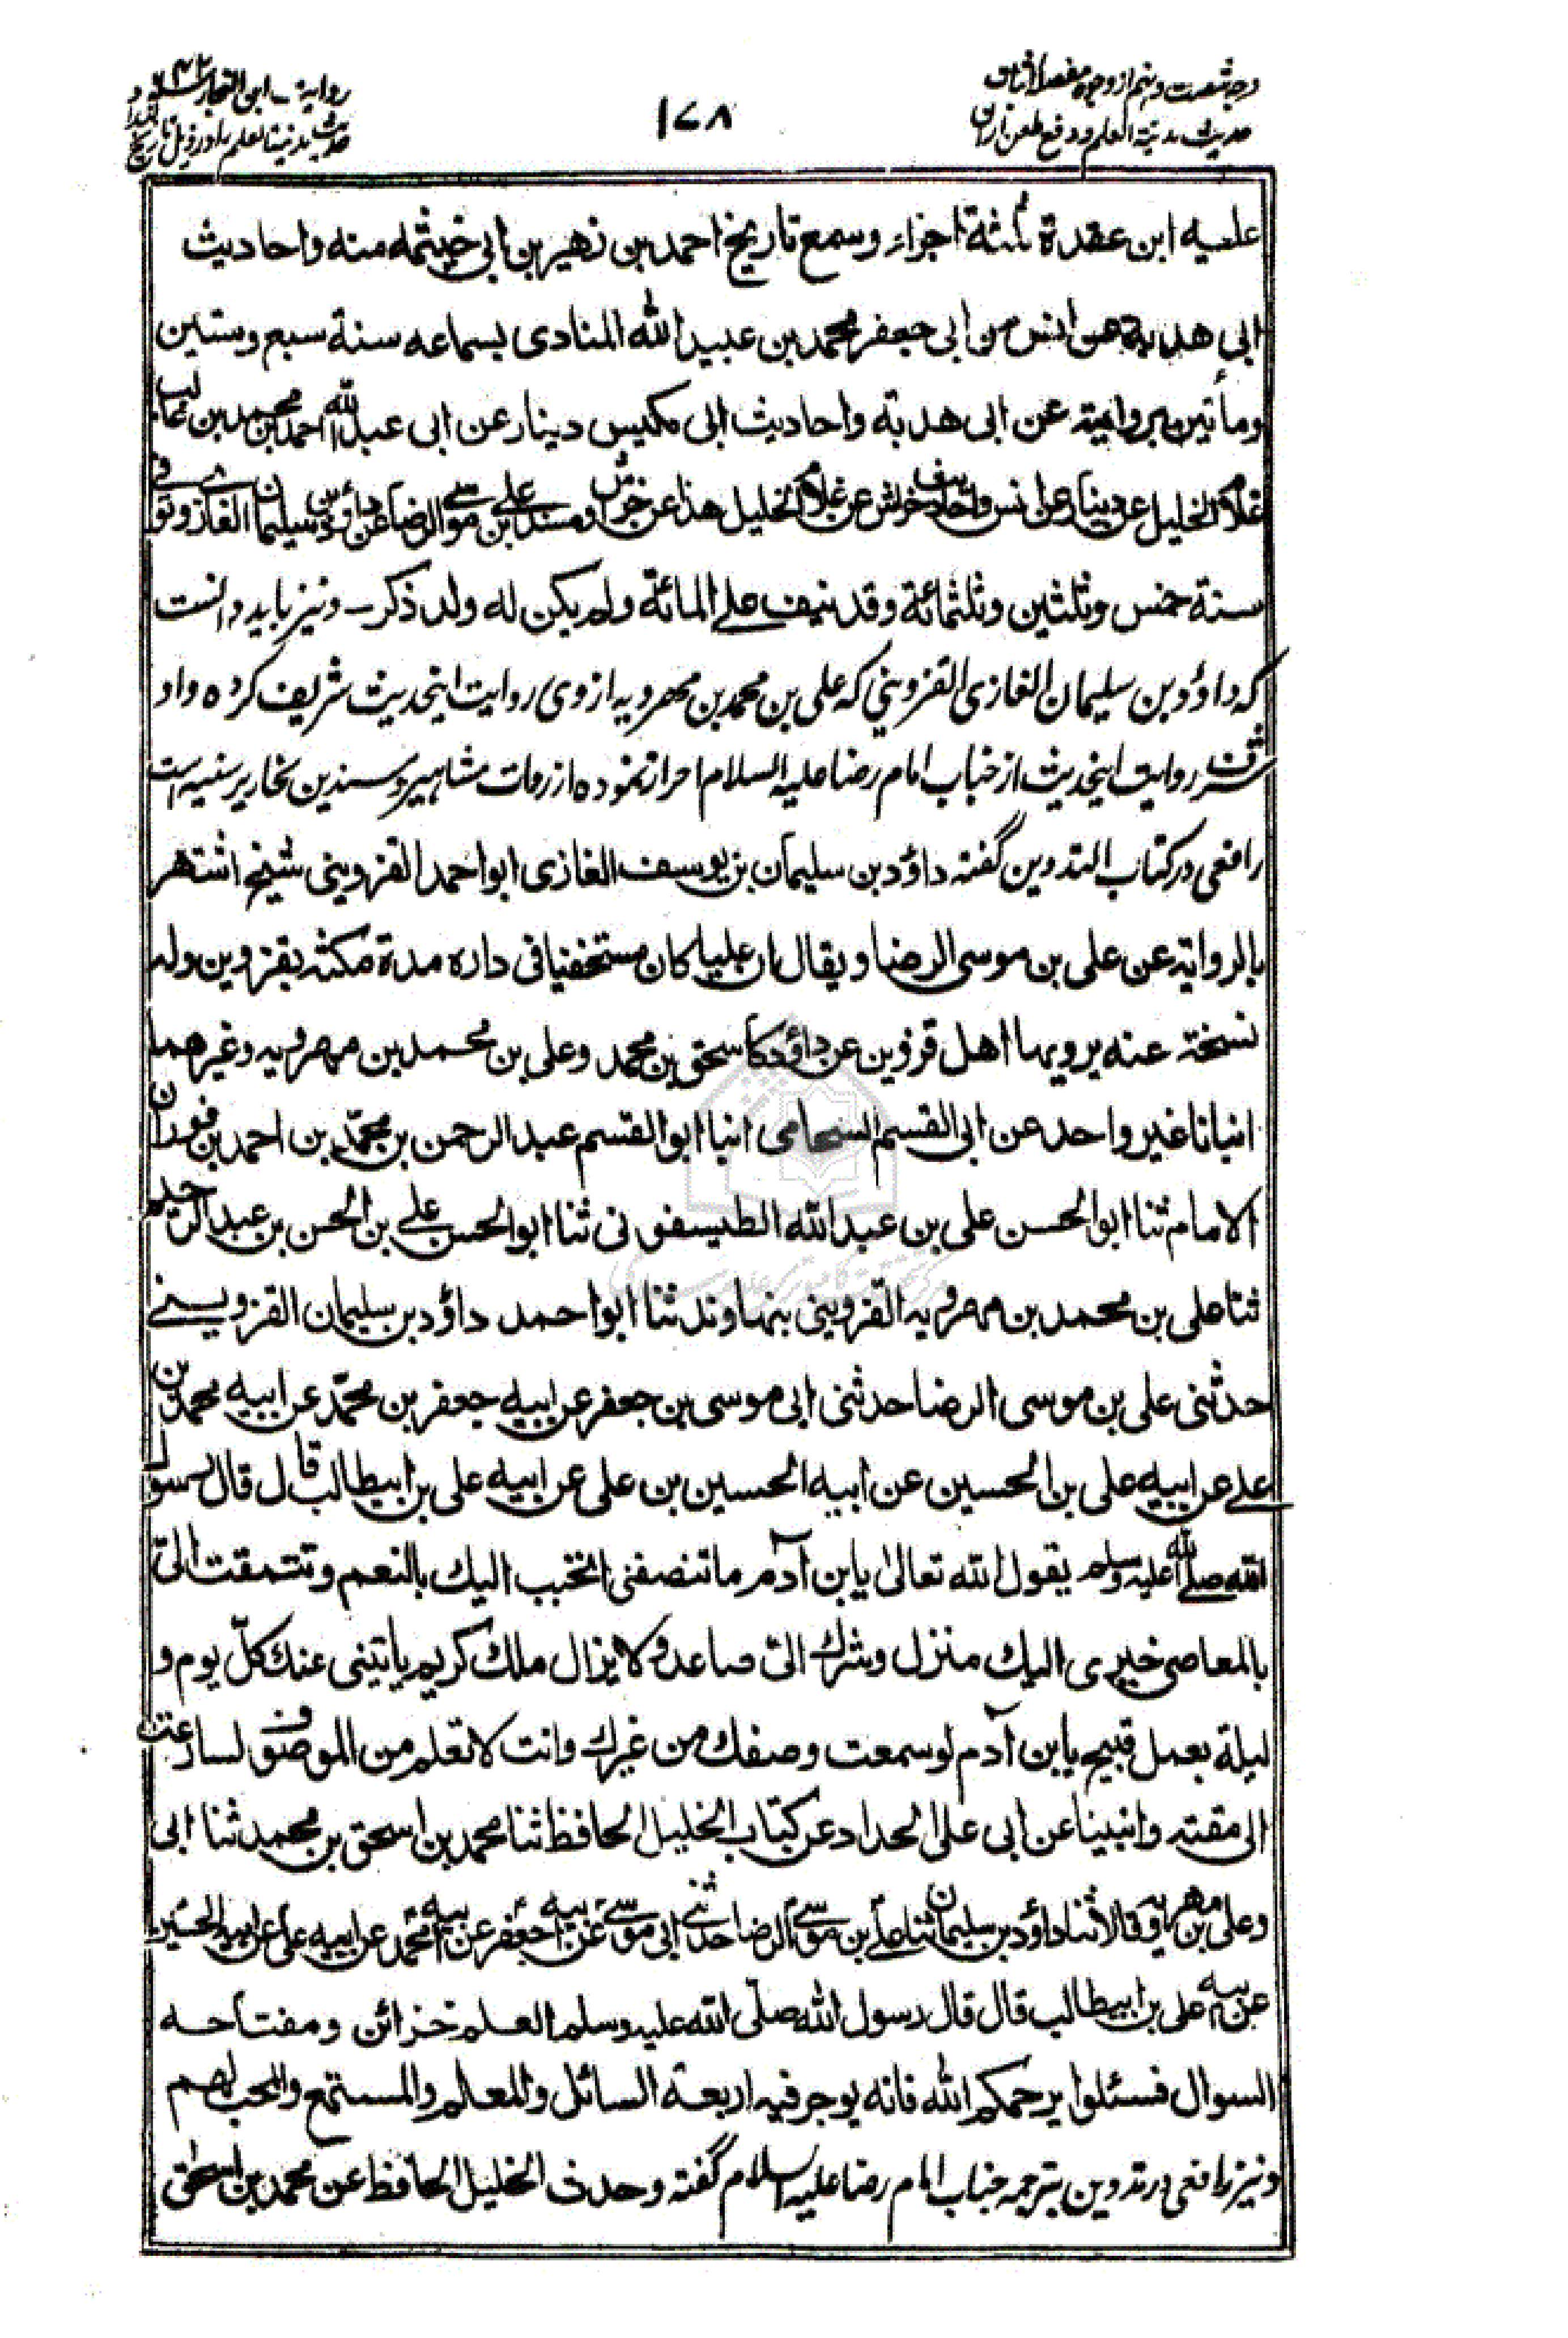 وجه شصت و پنجم از وجوه مفصله اثبات
حدیث مدینة العلم و دفع طعن از ان
۱۷۸
روایة ابن النجار
حدیث مدینة العلم را در ذیل تاریخ
علیه ابن عقدة ثلثة اجزاء وسمع تاریخ احمد بن زهیر بن ابی خیثمه منه واحادیث
ابی هدبة عن انس من ابی جعفر محمد بن عبید الله المنادی بسماعه سنة سبع وستین
ومأتین بروایته عن ابی هدبة واحادیث ابی مکیس دینار عن ابی عبد الله احمد بن محمد بن غالب
غلام الخلیل عن دینار عن انس واحادیث خراش عن غلام الخلیل هذا عن خراش ومسند علی بن موسی الرضا عن داؤد بن سلیمان الغازی وتوفی
سنة خمس وثلثین وثلثمائة وقد نیف علی المائة ولم یکن له ولد ذکر ـ ونیز باید دانست
که داؤد بن سلیمان الغازی القزوینی که علی بن محمد بن مهرویه از وی روایت اینحدیث شریف کرده واو
شرف روایت اینحدیث از جناب امام رضا علیه السلام احراز نموده از روات مشاهیر ومسندین نحاریر سنیه است
رافعی در کتاب التدوین گفته داؤد بن سلیمان بن یوسف الغازی ابو احمد القزوینی شیخ اشتهر
بالروایة عن علی بن موسی الرضا ویقال ان علیا کان مستخفیا فی داره مدة مکثه بقزوین وله
نسخة عنه یرویها اهل قزوین عن داؤد کاسحق بن محمد وعلی بن محمد بن مهرویه وغیرهما
انبانا غیر واحد عن ابی القسم الشحامی انبا ابو القسم عبد الرحمن بن محمّد بن احمد بن فوران
الامام ثنا ابو الحسن علی بن عبد الله الطیسفونی ثنا ابو الحسن علی بن الحسن بن عبد الرحیم
ثنا علی بن محمد بن مهرویه القزوینی بنهاوند ثنا ابو احمد داؤد بن سلیمان القزوینی
حدثنی علی بن موسی الرضا حدثنی ابی موسی بن جعفر عن ابیه جعفر بن محمّد عن ابیه محمد بن
علی عن ابیه علی بن الحسین عن ابیه الحسین بن علی عن ابیه علی بن ابیطالب قال قال رسول
الله صلی الله علیه وسلم یقول الله تعالی یا بن آدم ما تنصفنی اتحبب الیک بالنعم وتتمقت الیّ
بالمعاصی خیری الیک منزل وشرک الیّ صاعد ولا یزال ملک کریم یأتینی عنک کلّ یوم و
لیلة بعمل قبیح یا بن آدم لو سمعت وصفک من غیرک وانت لا تعلم من الموصوف لسارعت
الی مقته وانبینا عن ابی علی الحداد عن کتاب الخلیل الحافظ ثنا محمد بن اسحق بن محمد ثنا ابی
وعلی بن مهرویه قالا ثنا داؤد بن سلیمان ثنا علی بن موسی الرضا حدثنی ابی موسی عن ابیه جعفر عن ابیه محمد عن ابیه علی عن ابیه الحسین
عن ابیه علی بن ابیطالب قال قال رسول الله صلّی الله علیه وسلم العلم خزائن ومفتاحه
السوال فسئلوا یرحمکم الله فانه یوجر فیه اربعة السائل والمعلم والمستمع والمحب لهم
ونیز رافعی در تدوین بترجمه جناب امام رضا علیه السلام گفته وحدث الخلیل الحافظ عن محمد بن اسحق